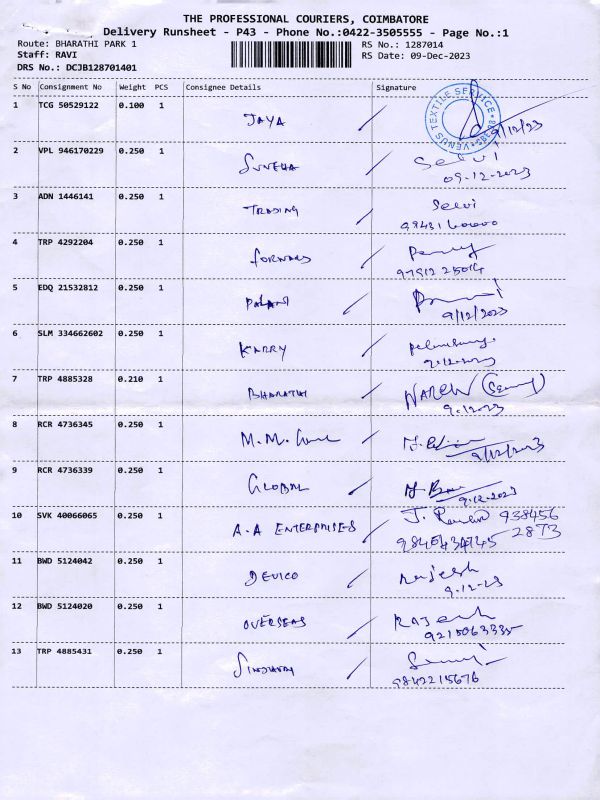 THE PROFESSIONAL COURIERS, COIMBATORE
Delivery Runsheet - P43 - Phone No.:0422-3505555 - Page No.:1
Route: BHARATHI PARK 1
RS No.: 1287014
Staff: RAVI
RS Date: 09-Dec-2023
DRS No.: DCJB128701401
S No Consignment No Weight PCS Consignee Details Signature
1 TCG 50529122 0.100 1 JAYA
VENUS TEXTILE SERVICE
9/12/23
2 VPL 946170229 0.250 1 SUNEHA Selvi
09-12-2023
3 ADN 1446141 0.250 1 TRADING Selvi
4 TRP 4292204 0.250 1 FORWARD
5 EDQ 21532812 0.250 1 PALANI
9/12/2023
6 SLM 334662602 0.250 1 KARRY
9-12-2023
7 TRP 4885328 0.210 1 BHARATHI NAREN
9.12023
8 RCR 4736345 0.250 1 M.M.
9/12/2023
9 RCR 4736339 0.250 1 GLOBAL
9-12-2023
10 SVK 40066065 0.250 1 A.A ENTERPRISES J. 938456
2873
11 BWD 5124042 0.250 1 DEVICO Rajesh
9-12-23
12 BWD 5124020 0.250 1 OVERSEAS Rajesh
9215063335
13 TRP 4885431 0.250 1
9842215676